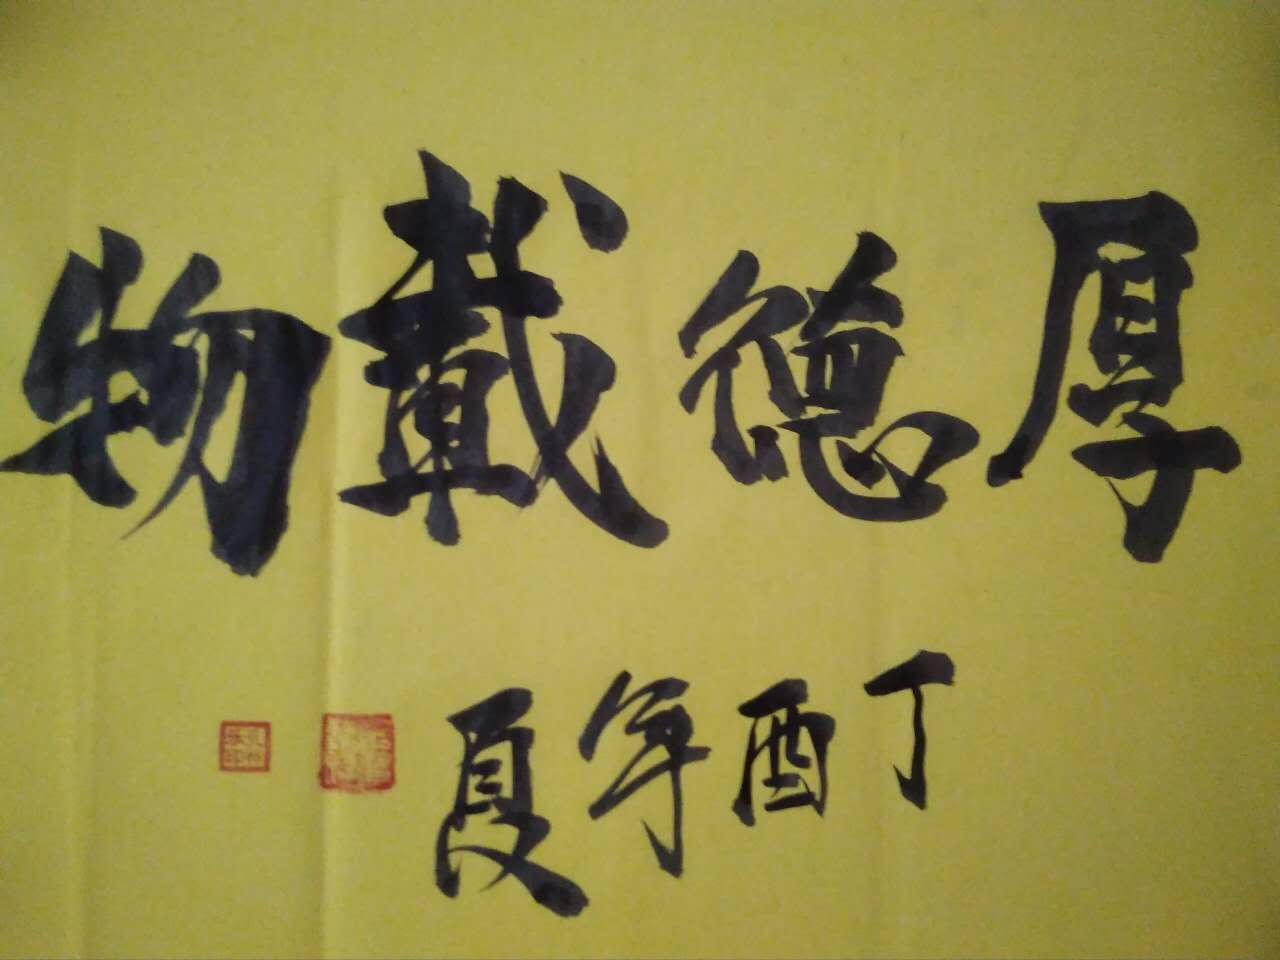 厚德載物
丁酉年夏